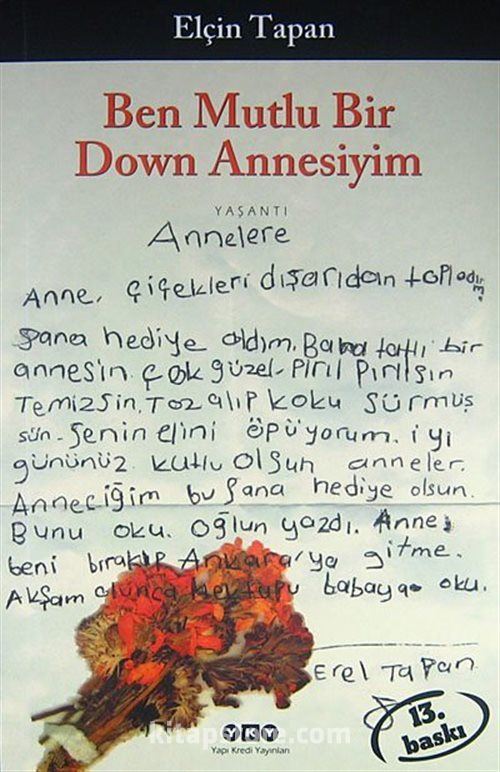 Elçin Tapan
Ben Mutlu Bir
Down Annesiyim
YAŞANTI
Annelere
Anne, çiçekleri dışarıdan topladım.
Şana hediye aldım. Bana tatlı bir
anneşin. Çok güzel- Pırıl Pırılşın
Temizsin, Toz alıp koku sürmüş
sün- Şenin elini öpüyorum. iyi
gününüz kutlu olsun anneler.
Anneciğim bu şana hediye olsun.
Bunu oku. oğlun yazdı. Anne,
beni bırakıp Ankara'ya gitme.
Akşam olunca Mektupu babaya oku.
Erel Tapan
13.
baskı
kitapyurdu.com
YKY
Yapı Kredi Yayınları